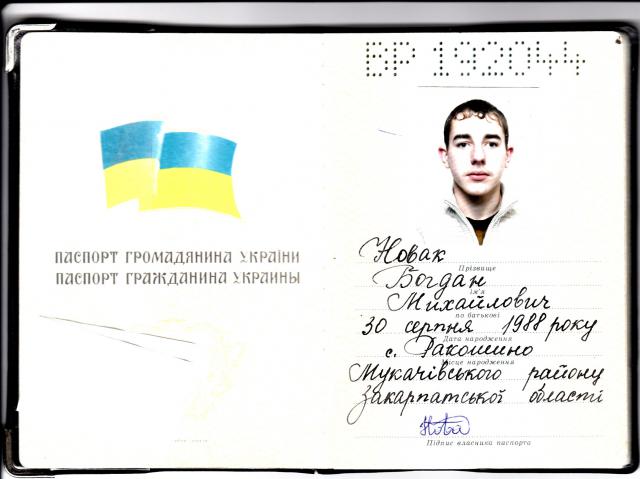 ПАСПОРТ ГРОМАДЯНИНА УКРАЇНИ
ПАСПОРТ ГРАЖДАНИНА УКРАИНЫ
ВР 192044
Новак
Прізвище
Богдан
ім'я
Михайлович
по батькові
30 серпня 1988 року
Дата народження
с. Ракошино
Місце народження
Мукачівського району
Закарпатської області
Підпис власника паспорта